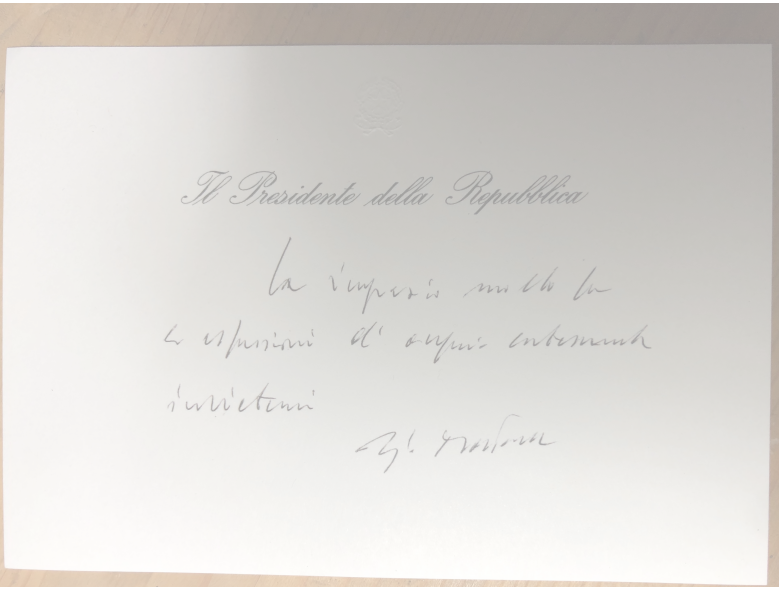 Il Presidente della Repubblica
La ringrazio molto per
le espressioni di augurio cortesemente
inviatemi